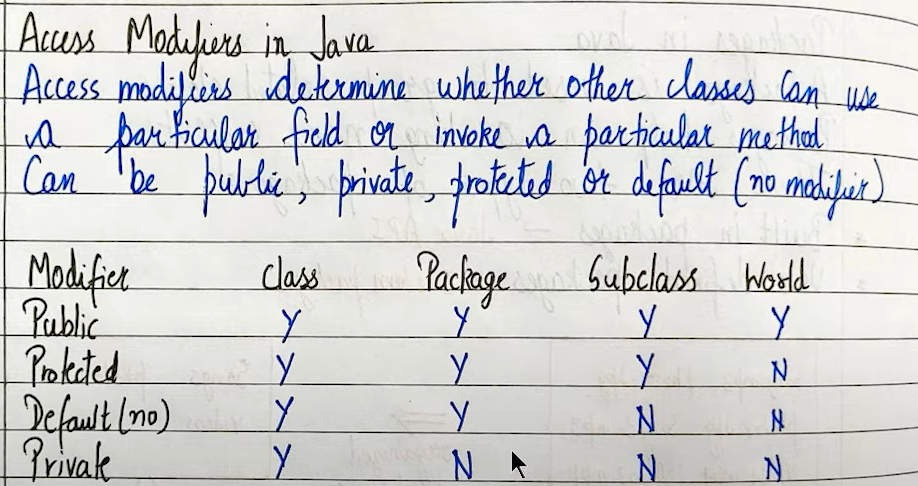 Access Modifiers in Java
Access modifiers determine whether other classes can use
a particular field or invoke a particular method
Can be public, private, protected or default (no modifier)
Modifier Class Package Subclass World
Public Y Y Y Y
Protected Y Y Y N
Default (no) Y Y N N
Private Y N N N